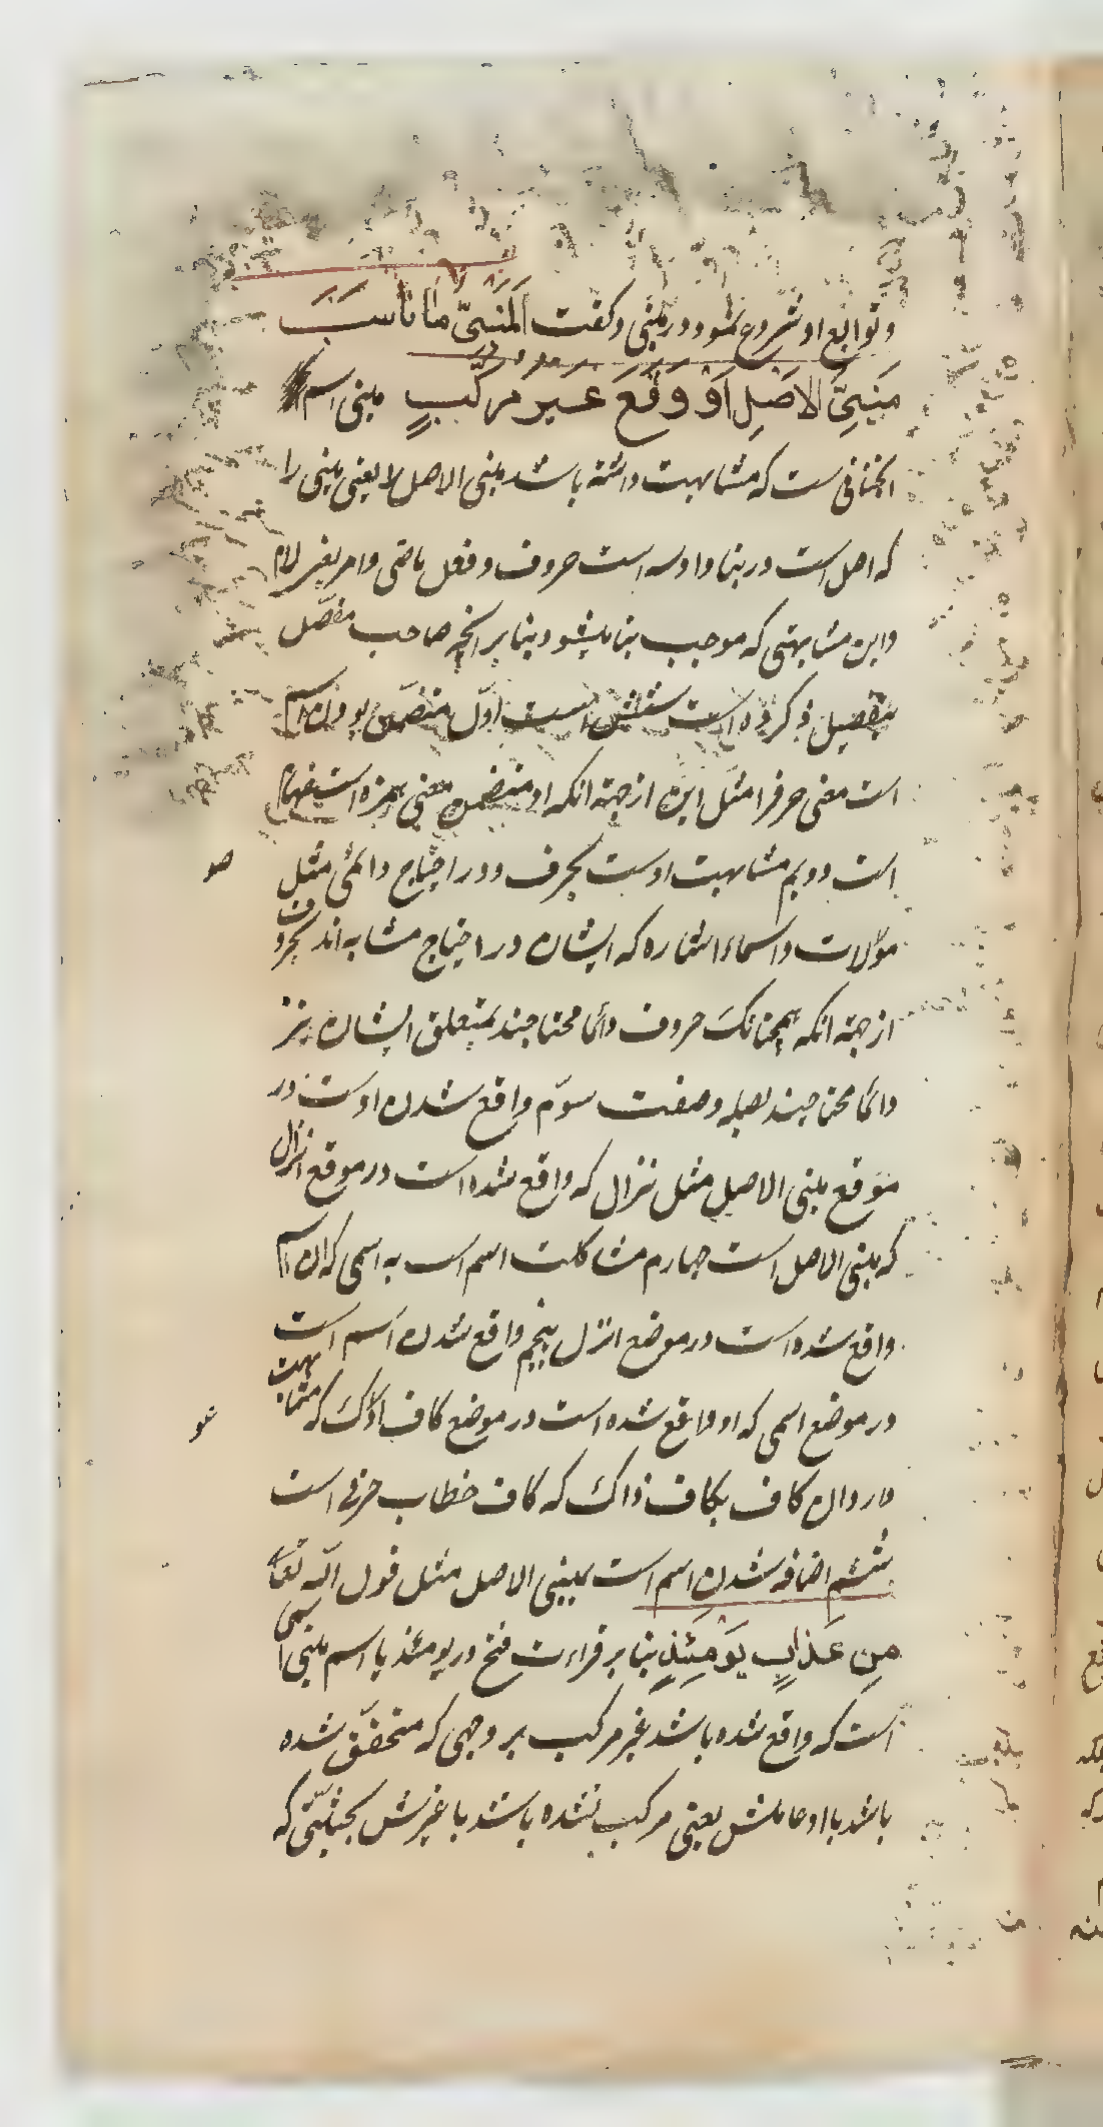 وتوابع او شروع نمود در مبنی و گفت اَلمَبنِیّ مَا نَاسَبَ
مَبنِیَّ الاَصلِ اَو وَقَعَ غَیرَ مُرَکَّبٍ مبنی اسم
انچنانی ست که مشابهت داشته باشد مبنی الاصل را یعنی مبنی را
که اصل است در بنا و او سه است حروف و فعل ماضی و امر بغیر لام
و این مشابهتی که موجب بنا میشود بنا بر انچه صاحب مفصّل
بتفصیل ذکر کرده است شش است اوّل متضمّن بودن اسم
است معنی حرفرا مثل این از جهة انکه او متضمن معنی همزه استفهام
است دویم مشابهت اوست بحرف و در احتیاج دائمی مثل
موصولات و اسماء اشاره که ایشان در احتیاج مشابه اند بحروف
از جهة انکه همچنانک حروف دائما محتاجند بمتعلق ایشان نیز
دائما محتاجند بصله و صفت سوّم واقع شدن اوست در
موقع مبنی الاصل مثل نزال که واقع شده است در موقع انزل
که مبنی الاصل است چهارم مشاکلت اسم است به اسمی که ان اسم
واقع شده است در موضع انزل پنجم واقع شدن اسم است
در موضع اسمی که او واقع شده است در موضع کاف ادکّ که مشابهت
دارد ان کاف بکاف ذاک که کاف خطاب حرفی است
ششم اضافه شدن اسم است بمبنی الاصل مثل قول الله تعالی
مِن عَذابِ یَومَئِذٍ بنا بر قراءت فتح در یومئذ یا اسم مبنی اسمی
است که واقع شده باشد غیر مرکب بر وجهی که متحقق شده
باشد با او عاملش یعنی مرکب نشده باشد با غیرش بحیثیّتی که